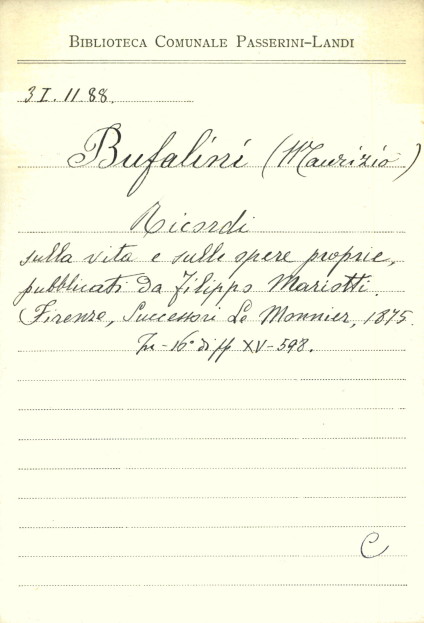 BIBLIOTECA COMUNALE PASSERINI-LANDI
3 I. 11. 88.
Bufalini (Maurizio)
Ricordi
sulla vita e sulle opere proprie,
pubblicati da Filippo Mariotti.
(Firenze, Successori Le Monnier, 1875.
In-16° di pp XV-598.
C